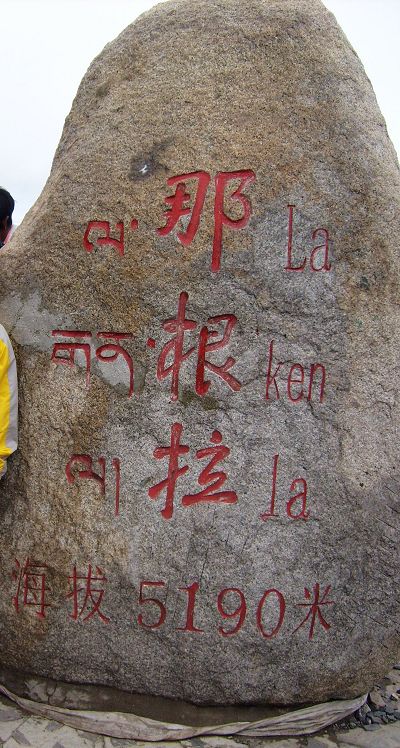 ལ་ 那 La
གན་ 根 ken
ལ། 拉 la
海拔5190米